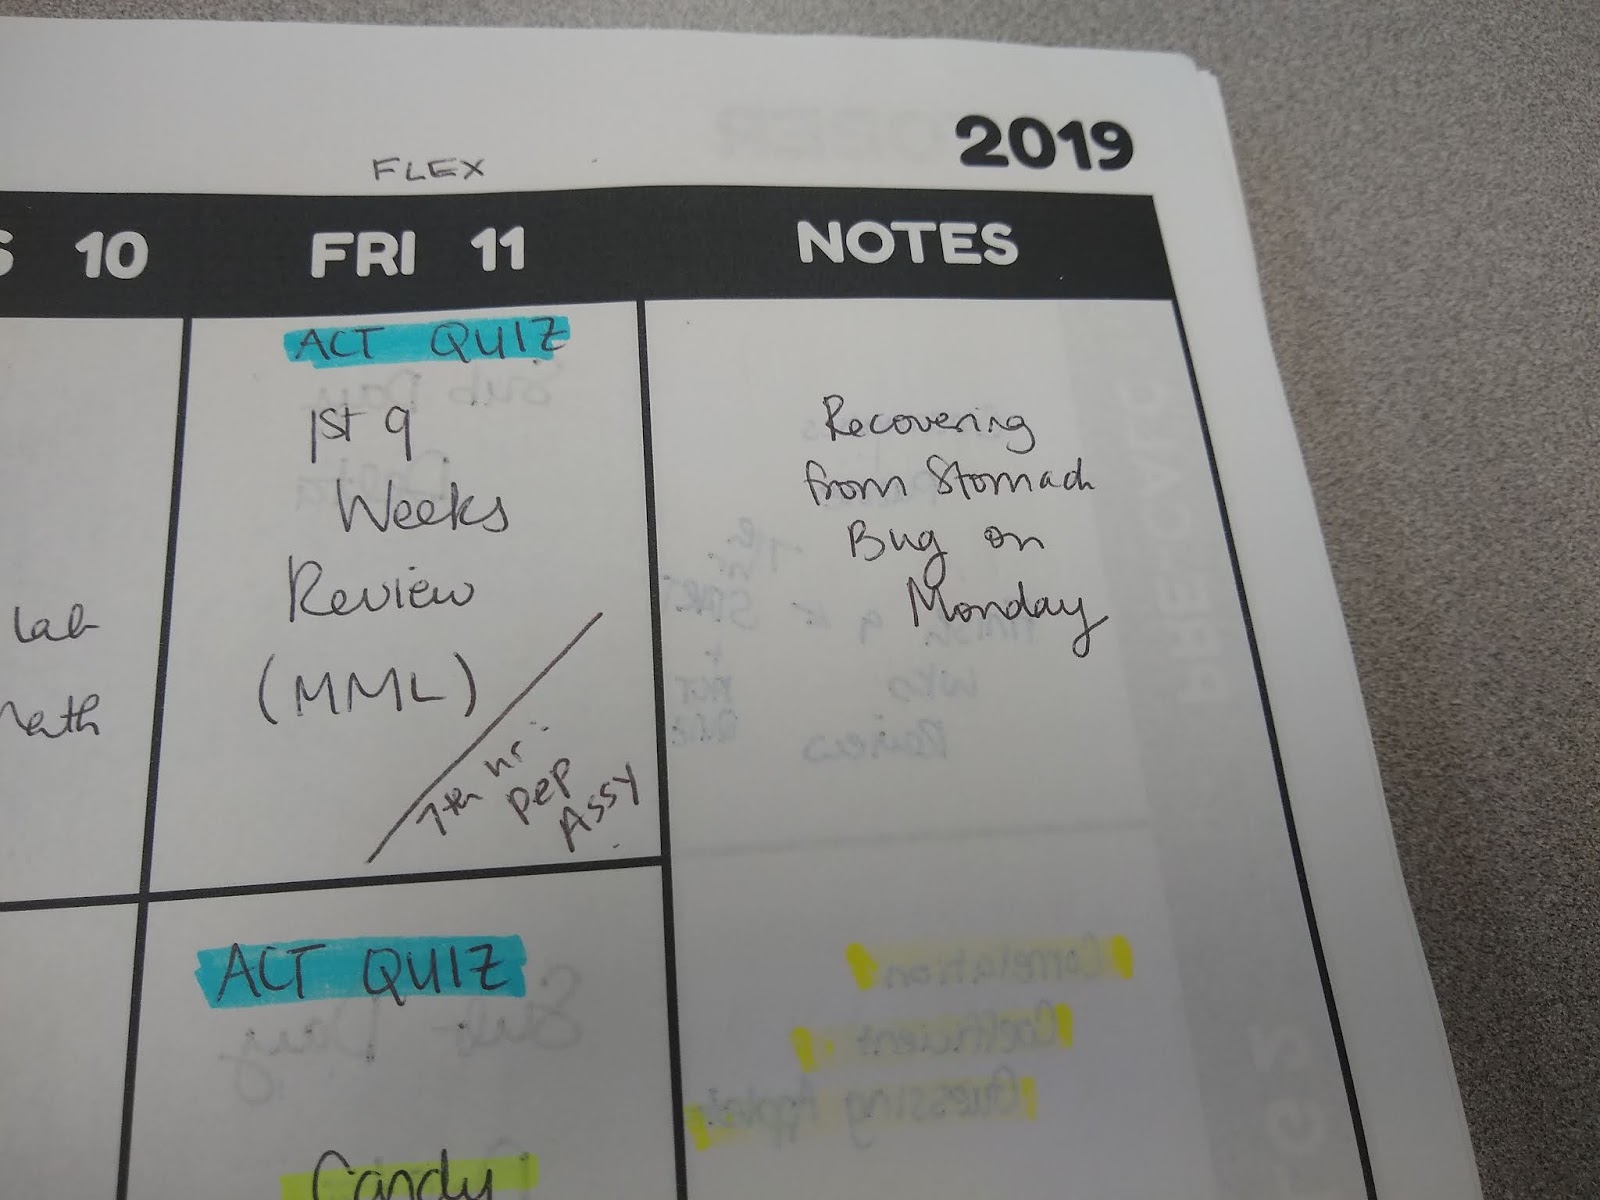 2019
FLEX
S 10 FRI 11 NOTES
lab
math
ACT QUIZ
1st 9
Weeks
Review
(MML)
7th hr:
pep
Assy
Recovering
from Stomach
Bug on
Monday
ACT QUIZ
Candy